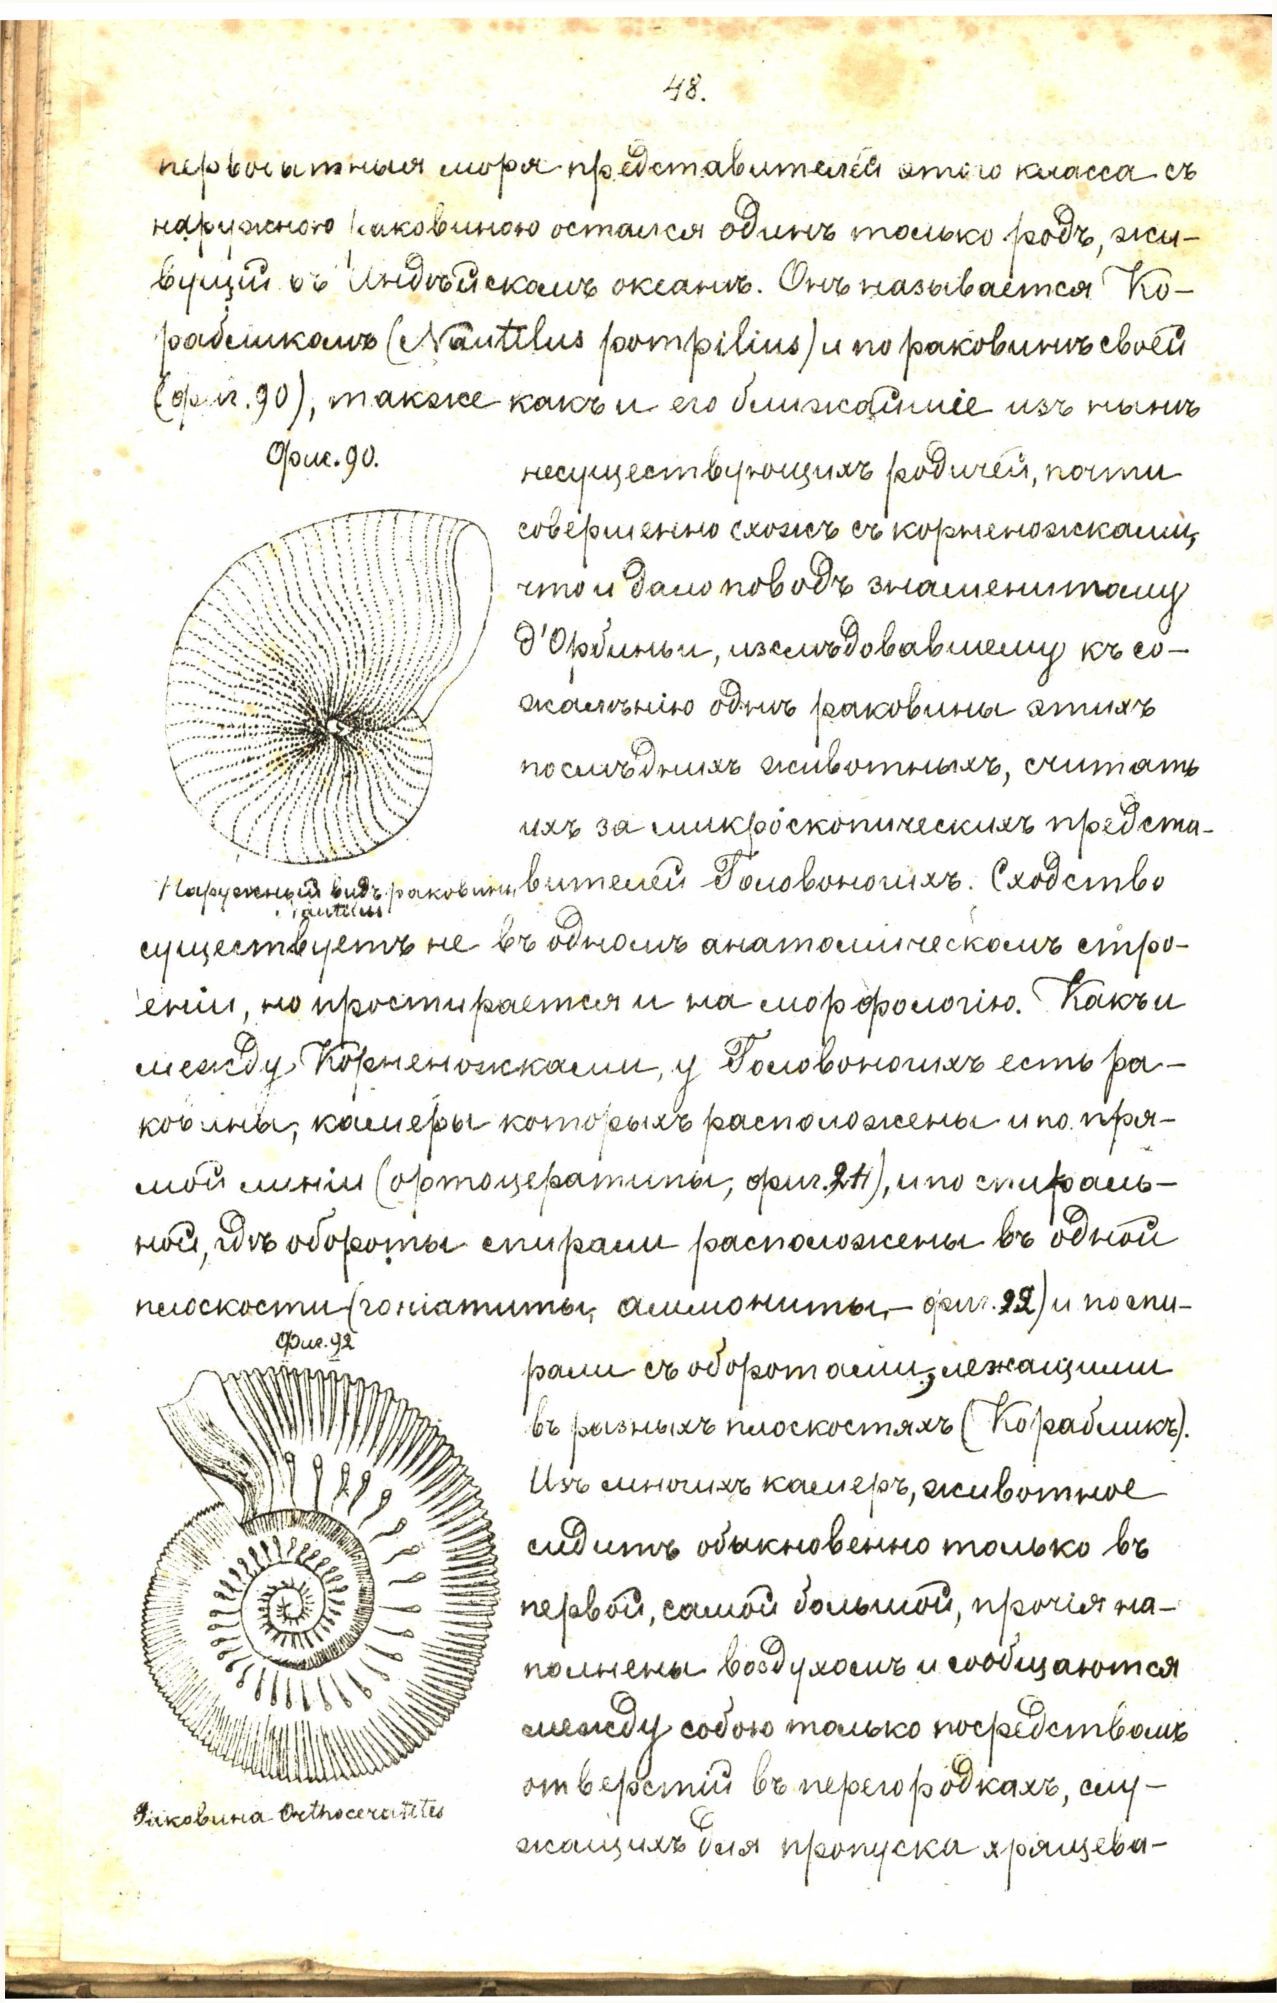 48.
первобытныя моря представителей этого класса съ
наружною раковиною остался одинъ только родъ, жи-
вущій въ Индѣйскомъ океанѣ. Онъ называется Ко-
рабликомъ (Nautilus pompilius) и по раковинѣ своей
(фиг. 90), также какъ и его ближайшіе изъ нынѣ
Фиг. 90.
несуществующихъ родичей, почти
совершенно схожъ съ корненожками,
что и дало поводъ знаменитому
д'Орбиньи, изслѣдовавшему къ со-
жалѣнію однѣ раковины этихъ
послѣднихъ животныхъ, считать
ихъ за микроскопическихъ предста-
Наружный видъ раковины
Nautilus
вителей Головоногихъ. Сходство
существуетъ не въ одномъ анатомическомъ стро-
еніи, но простирается и на морфологію. Какъ и
между Корненожками, у Головоногихъ есть ра-
ковины, камеры которыхъ расположены и по пря-
мой линіи (ортоцератиты, фиг. 21), и по спираль-
ной, гдѣ обороты спирали расположены въ одной
плоскости (гоніатиты, аммониты, - фиг. 22) и по спи-
Фиг. 92
рали съ оборотами, лежащими
въ разныхъ плоскостяхъ (Корабликъ).
Изъ многихъ камеръ, животное
сидитъ обыкновенно только въ
первой, самой большой, прочія на-
полнены воздухомъ и сообщаются
между собою только посредствомъ
отверстій въ перегородкахъ, слу-
жащихъ для пропуска хрящева-
Раковина Orthoceratites